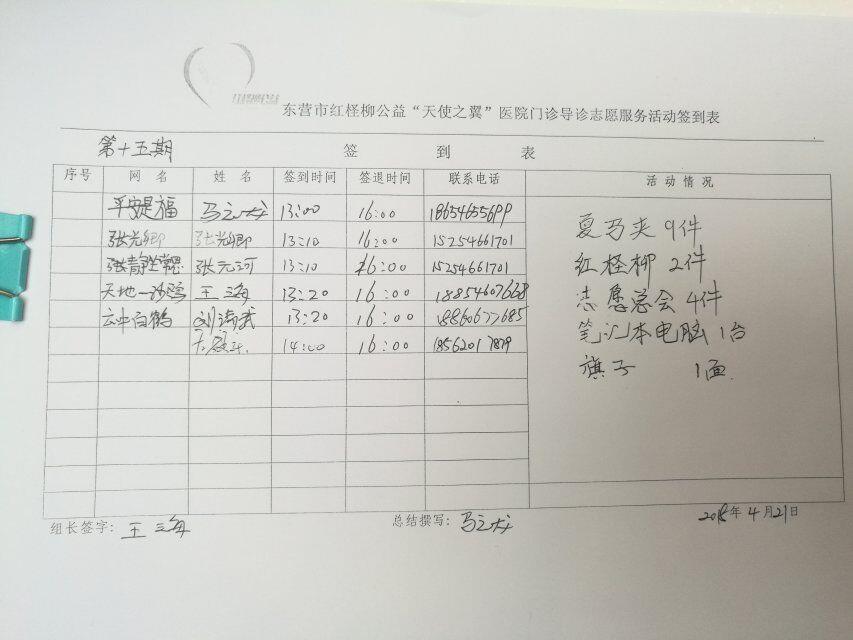 东营市红柽柳公益“天使之翼”医院门诊导诊志愿服务活动签到表
第十五期 签到表
序号 网名 姓名 签到时间 签退时间 联系电话 活动情况
平安是福 马立龙 13:00 16:00
张光卿 张光卿 13:10 16:00 15254661701
张静坐常思 张元河 13:10 16:00 15254661701
天地一沙鸥 王海 13:20 16:00 18854607668
云中白鹤 刘涛武 13:20 16:00 18860677685
14:00 16:00 18562017879
夏马夹 9件
红柽柳 2件
志愿总会 4件
笔记本电脑 1台
旗子 1面
组长签字: 王海 总结撰写: 马立龙 2018年4月21日